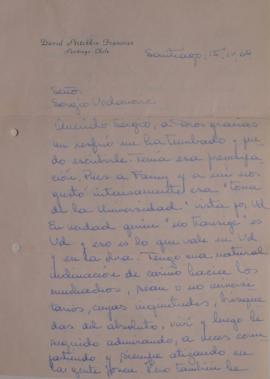 David Stitchkin Branover
Santiago-Chile
Santiago, 15.
Señor
Sergio Vodanovic
Querido Sergio, a Dios gracias
un resfrío me ha tumbado y pue
do escribirle. Tenía esa preocupa
ción. Pues a Fanny y a mí nos
gustó intensamente esa "toma
de la Universidad" vista por Ud
En verdad quien "no transige" es
Ud y eso es lo que vale en Ud
y en la obra. Tengo una natural
inclinación de cariño hacia los
muchachos, sean o no universi
tarios, cuyas inquietudes, búsque
das del absoluto, viví y luego he
seguido admirando, a veces com
partiendo y siempre atizando en
la gente joven. Pero también he